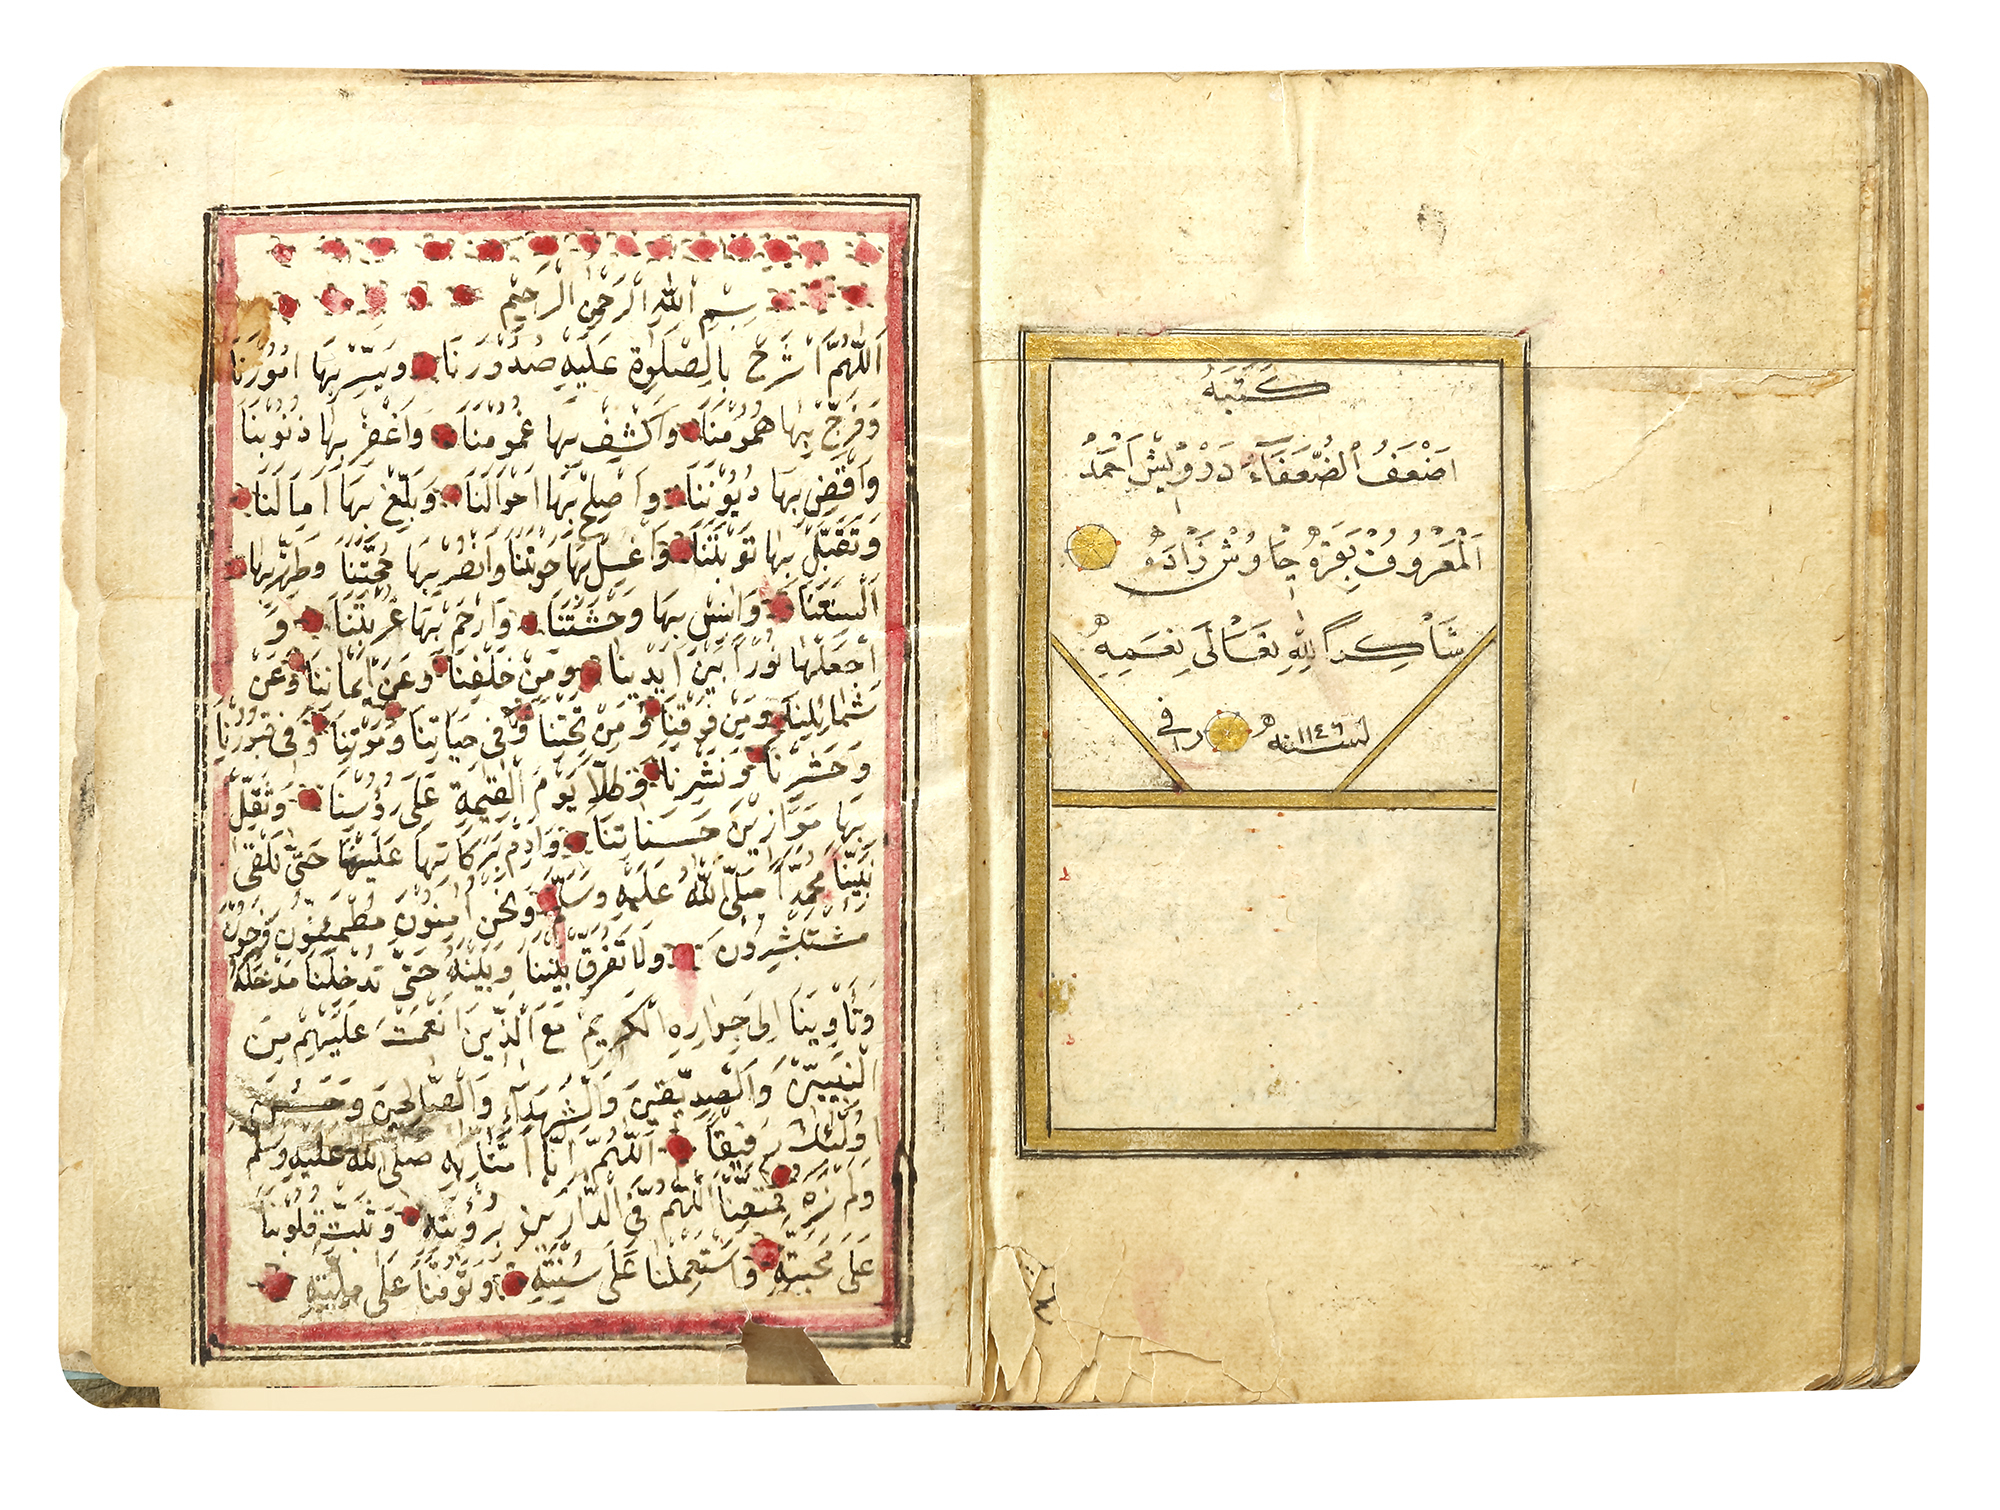 كَتَبَهُ
اَضْعَفُ الضُّعَفَاءِ دَرْوِيشْ اَحْمَدُ
اَلْمَعْرُوفُ بِقَرَهْ جَاوُشْ زَادَهْ
شَاكِراً لِلّٰهِ تَعَالَى نِعَمِهِ
فى سنه ١١٤٦
بِسْمِ اللّٰهِ الرَّحْمٰنِ الرَّحِيْمِ
اَللّٰهُمَّ اشْرَحْ بِالصَّلٰوةِ عَلَيْهِ صُدُوْرَنَا وَيَسِّرْ بِهَا اُمُوْرَنَا
وَفَرِّجْ بِهَا هُمُوْمَنَا وَاكْشِفْ بِهَا غُمُوْمَنَا وَاغْفِرْ بِهَا ذُنُوْبَنَا
وَاقْضِ بِهَا دُيُوْنَنَا وَاَصْلِحْ بِهَا اَحْوَالَنَا وَبَلِّغْ بِهَا اٰمَالَنَا
وَتَقَبَّلْ بِهَا تَوْبَتَنَا وَاغْسِلْ بِهَا حَوْبَتَنَا وَانْصُرْ بِهَا حُجَّتَنَا وَطَهِّرْ بِهَا
اَلْسِنَتَنَا وَاٰنِسْ بِهَا وَحْشَتَنَا وَارْحَمْ بِهَا غُرْبَتَنَا وَ
اجْعَلْهَا نُوْراً بَيْنَ اَيْدِيْنَا وَمِنْ خَلْفِنَا وَعَنْ اَيْمَانِنَا وَعَنْ
شَمَائِلِنَا وَمِنْ فَوْقِنَا وَمِنْ تَحْتِنَا وَفِى حَيَاتِنَا وَمَوْتِنَا وَفِى قُبُوْرِنَا
وَحَشْرِنَا وَنَشْرِنَا وَظِلّاً يَوْمَ الْقِيٰمَةِ عَلَى رُؤُسِنَا وَثَقِّلْ
بِهَا مَوَازِيْنَ حَسَنَاتِنَا وَاَدِمْ بَرَكَاتِهَا عَلَيْنَا حَتّٰى نَلْقٰى
نَبِيَّنَا مُحَمَّداً صَلَّى اللّٰهُ عَلَيْهِ وَسَلَّمَ وَنَحْنُ اٰمِنُوْنَ مُطْمَئِنُّوْنَ فَرِحُوْنَ
مُسْتَبْشِرُوْنَ وَلَا تُفَرِّقْ بَيْنَنَا وَبَيْنَهُ حَتّٰى تُدْخِلَنَا مَدْخَلَهُ
وَتَأْوِيَنَا اِلَى جِوَارِهِ الْكَرِيْمِ مَعَ الَّذِيْنَ اَنْعَمْتَ عَلَيْهِمْ مِنَ
النَّبِيّيْنَ وَالصِّدِّيْقِيْنَ وَالشُّهَدَاءِ وَالصَّالِحِيْنَ وَحَسُنَ
اُولٰئِكَ رَفِيْقاً اَللّٰهُمَّ اِنَّا اٰمَنَّا بِهِ صَلَّى اللّٰهُ عَلَيْهِ وَسَلَّمَ
وَلَمْ نَرَهُ فَمَتِّعْنَا اَللّٰهُمَّ فِى الدَّارَيْنِ بِرُؤْيَتِهِ وَثَبِّتْ قُلُوْبَنَا
عَلَى مَحَبَّتِهِ وَاسْتَعْمِلْنَا عَلَى سُنَّتِهِ وَتَوَفَّنَا عَلَى مِلَّتِهِ